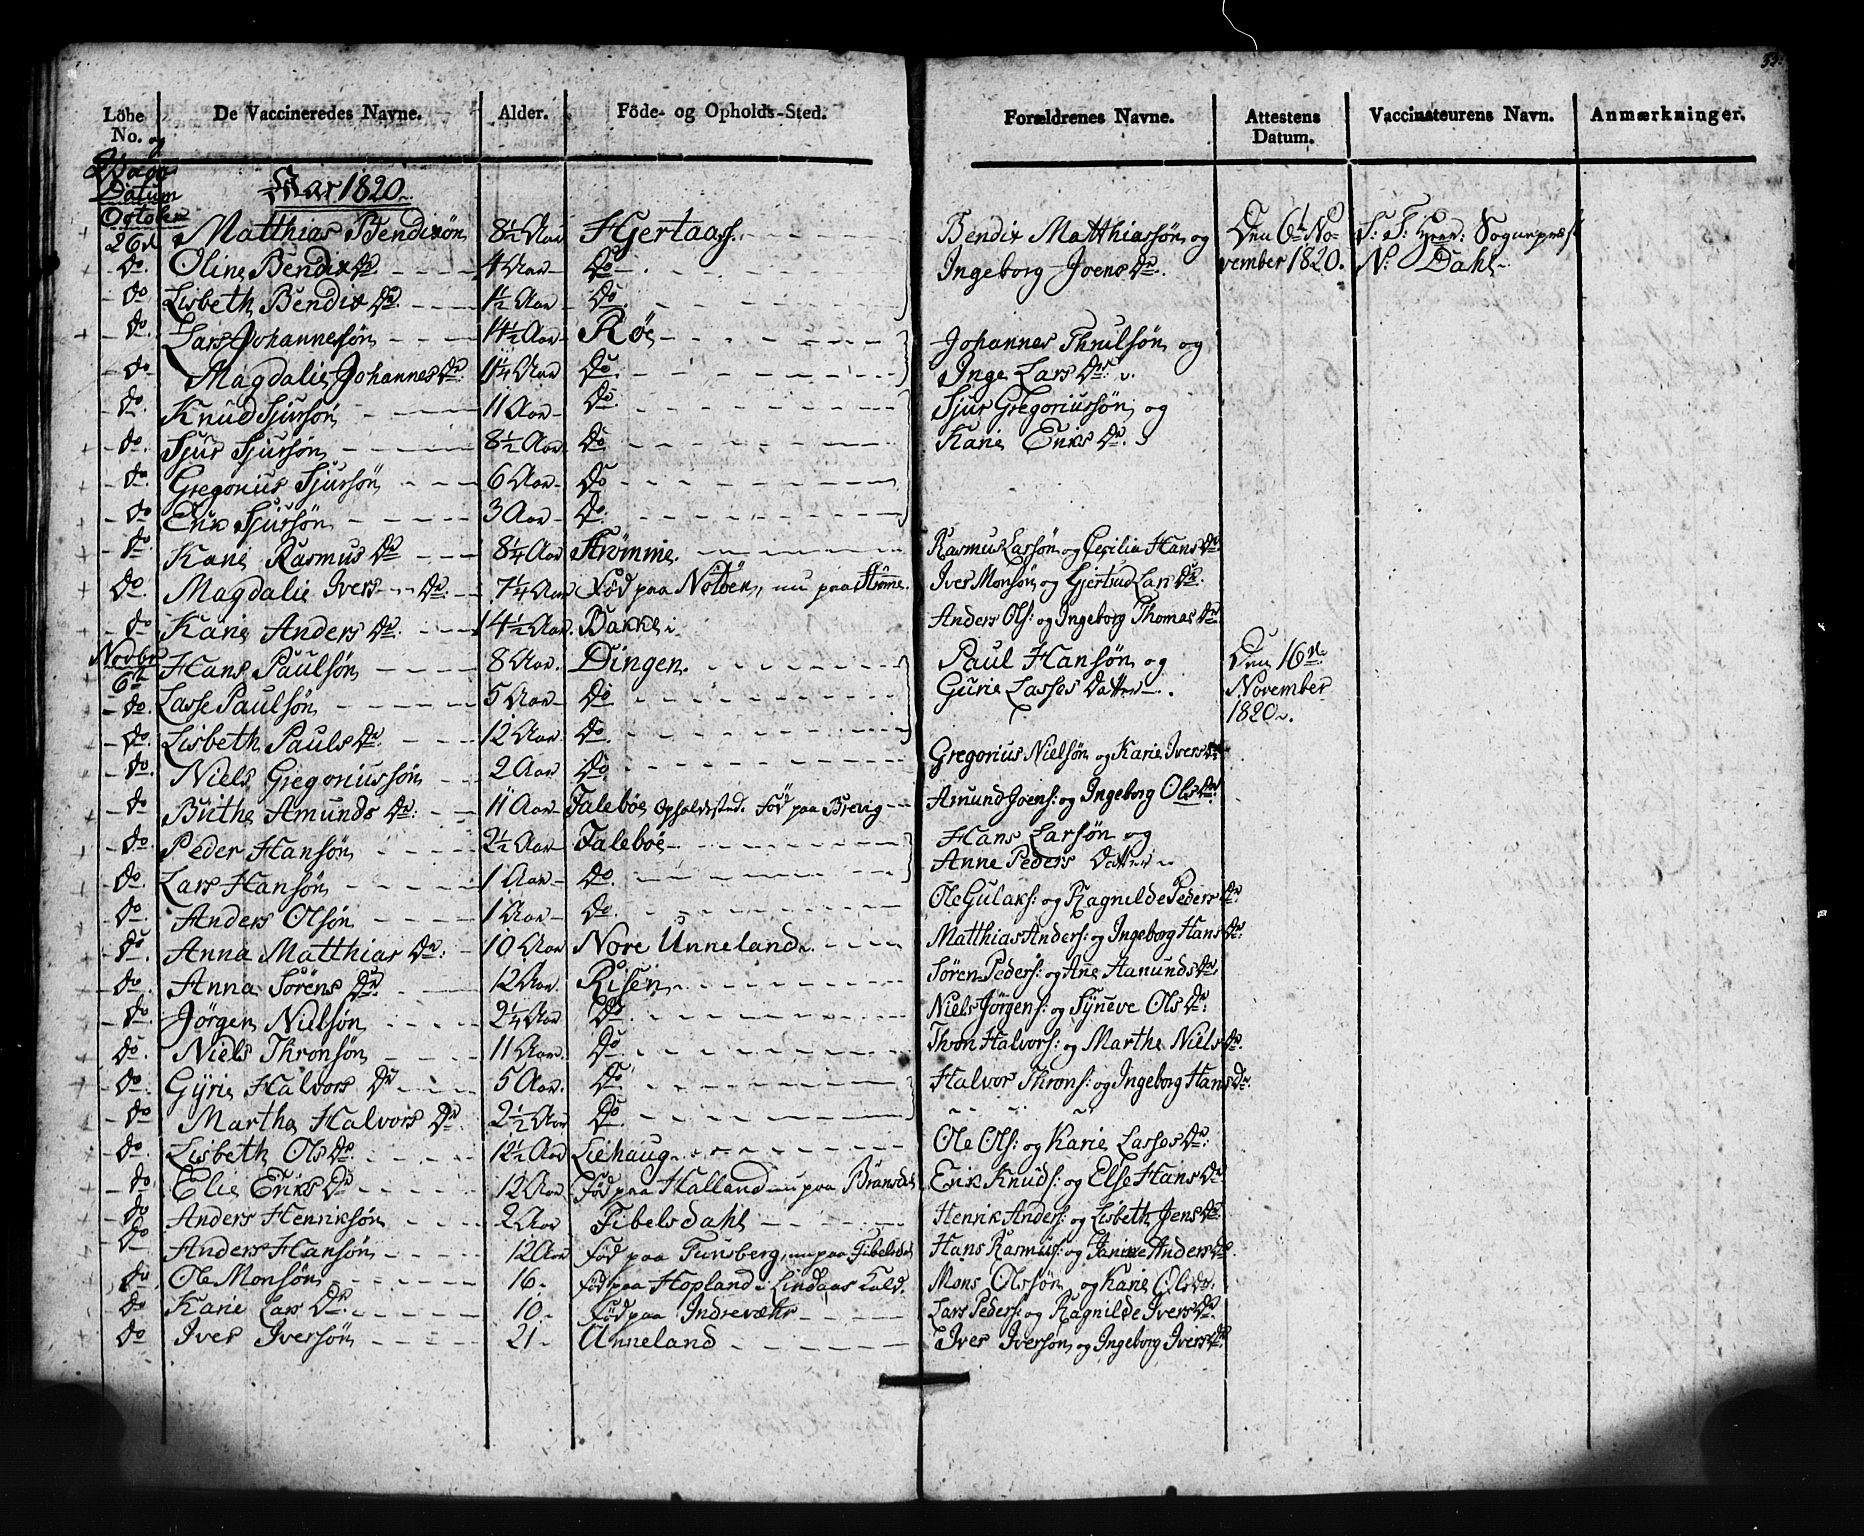 33.
Löbe No. De Vaccineredes Navne. Alder. Föde- og Opholds-Sted. Forældrenes Navne. Attestens Datum. Vaccinateurens Navn. Anmærkninger.
og
Datum Aar 1820.
October
26d Matthias Bendixøn 8½ Aar Hjertaas. Bendix Matthiassøn og Den 6te No- S: T: Herr: Sogneprest
do. Oline Bendix Dr 4 Aar Do Ingeborg Joens Dr. vember 1820. N: Dahl
do Lisbeth Bendix Dr 1½ Aar Do.
do Lars Johannesøn 4½ Aar Røe Johannes Thrulsøn og
do Magdalie Johannes Dr. 1¼ Aar Do. Inge Lars Dr.
do. Knud Sjursøn 11 Aar Do Sjur Gregoriussøn og
do. Sjur Sjursøn 8½ Aar Do Karie Eriks Dr.
do. Gregorius Sjursøn 6 Aar Do
do Erik Sjursøn 3 Aar Do.
do. Kari Rasmus Dr 8¼ Aar Strømme. Rasmus Larsøn og Cecilia Hans Dr
Do. Magdalie Ivers Dr. 7¼ Aar Fød paa Nötöen, nu paa Strøme. Iver Monsøn og Gjertrud Lars Dr.
do Karie Anders Dr. 14½ Aar. Bakke Anders Ols: og Ingeborg Thomas Dr
Novbr Hans Paulsøn 8 Aar. Dingen. Paul Hansøn og Den 16de
6te
do. Lasse Paulsøn 5 Aar Do Gurie Lasses Datter November
1820.
do. Lisbeth Pauls Dr. 12 Aar Do.
do. Niels Gregoriussøn 2 Aar Do Gregorius Nielsøn og Karie Ivers Dr
do Birthe Amunds Dr: 11 Aar Talebøe Opholdssted. Fød paa Brevig Amund Joens: og Ingeborg Ols Dr.
do. Peder Hansøn 2½ Aar Talebøe Hans Larsøn og
Anne Peders Datter
do. Lars Hansøn 1 Aar Do.
do. Anders Olsøn 1 Aar Do. Ole Gulaks: og Ragnilde Peders Dr.
do. Anna Matthias Dr: 10 Aar Nore Unneland. Matthias Anders: og Ingeborg Hans Dr.
do. Anna Sörens Dr. 12 Aar. Risen Sören Peders: og Ane Aamunds Dr.
do. Jörgen Nielsøn 2¼ Aar Do. Niels Jörgens: og Syneve Ols Dr.
do. Niels Thronsøn 11 Aar. Do. Thron Halvors: og Marthe Niels Dr.
do. Gyrie Halvors Dr 5 Aar. Do Halvor Throns: og Ingeborg Hans Dr.
do Marthe Halvors Dr. 2½ Aar Do.
do. Lisbeth Ols Dr. 12½ Aar Liehaug. Ole Ols: og Karie Lasses Dr:
do Elie Eriks Dr 12 Aar Fød paa Halland nu paa Erik Knuds: og Else Hans Dr
do Anders Henriksøn 2 Aar Fibelsdahl Henrik Anders: og Lisbeth Jens Dr.
do. Anders Hansøn 12 Aar fød paa Tunsberg, nu paa Hans Rasmus: og Anders Dr.
do Ole Monsøn 16. fød paa Hopland i Lindaas Kald. Mons Olssøn og Karie Ols Dr.
do Karie Lars Dr. 10. fød paa Indrevæhr Lars Peders: og Ragnilde Ivers Dr.
do Iver Iversøn 21 Unneland Iver Iversøn og Ingeborg Ivers Dr.